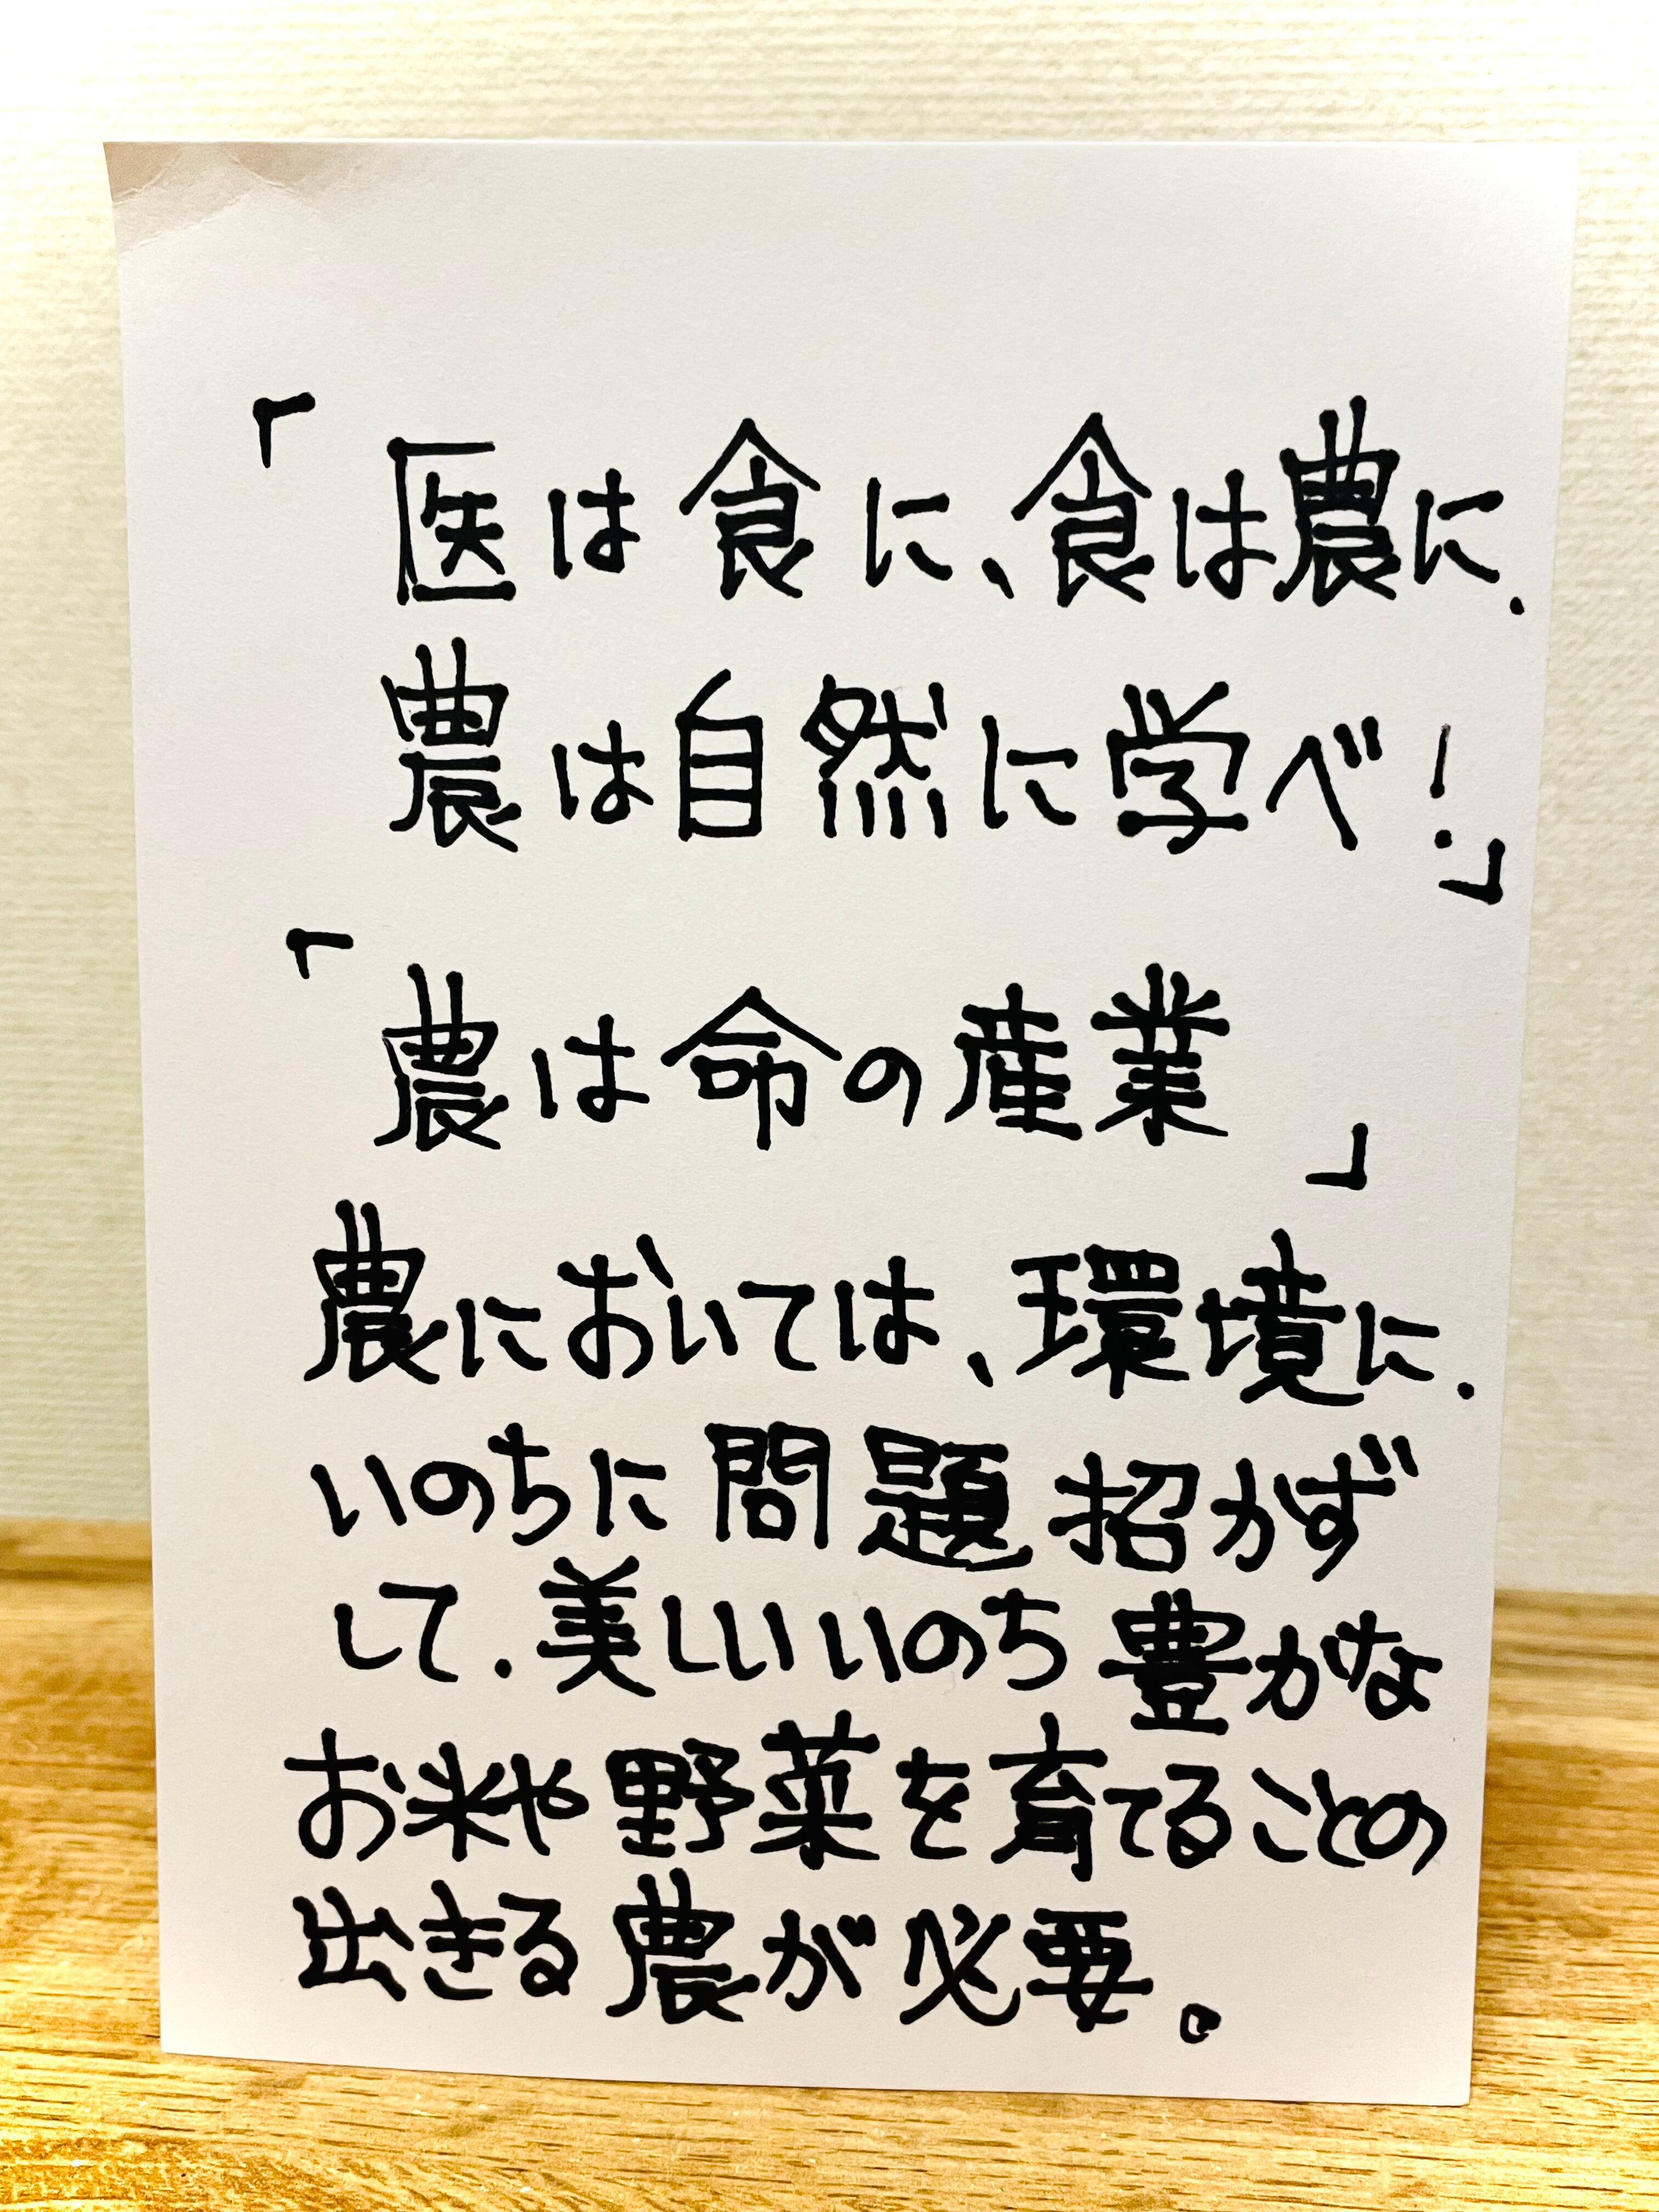 「医は食に、食は農に、
農は自然に学べ!」
「農は命の産業」
農においては、環境に、
いのちに問題招かず
して、美しいいのち豊かな
お米や野菜を育てることの
出きる農が必要。